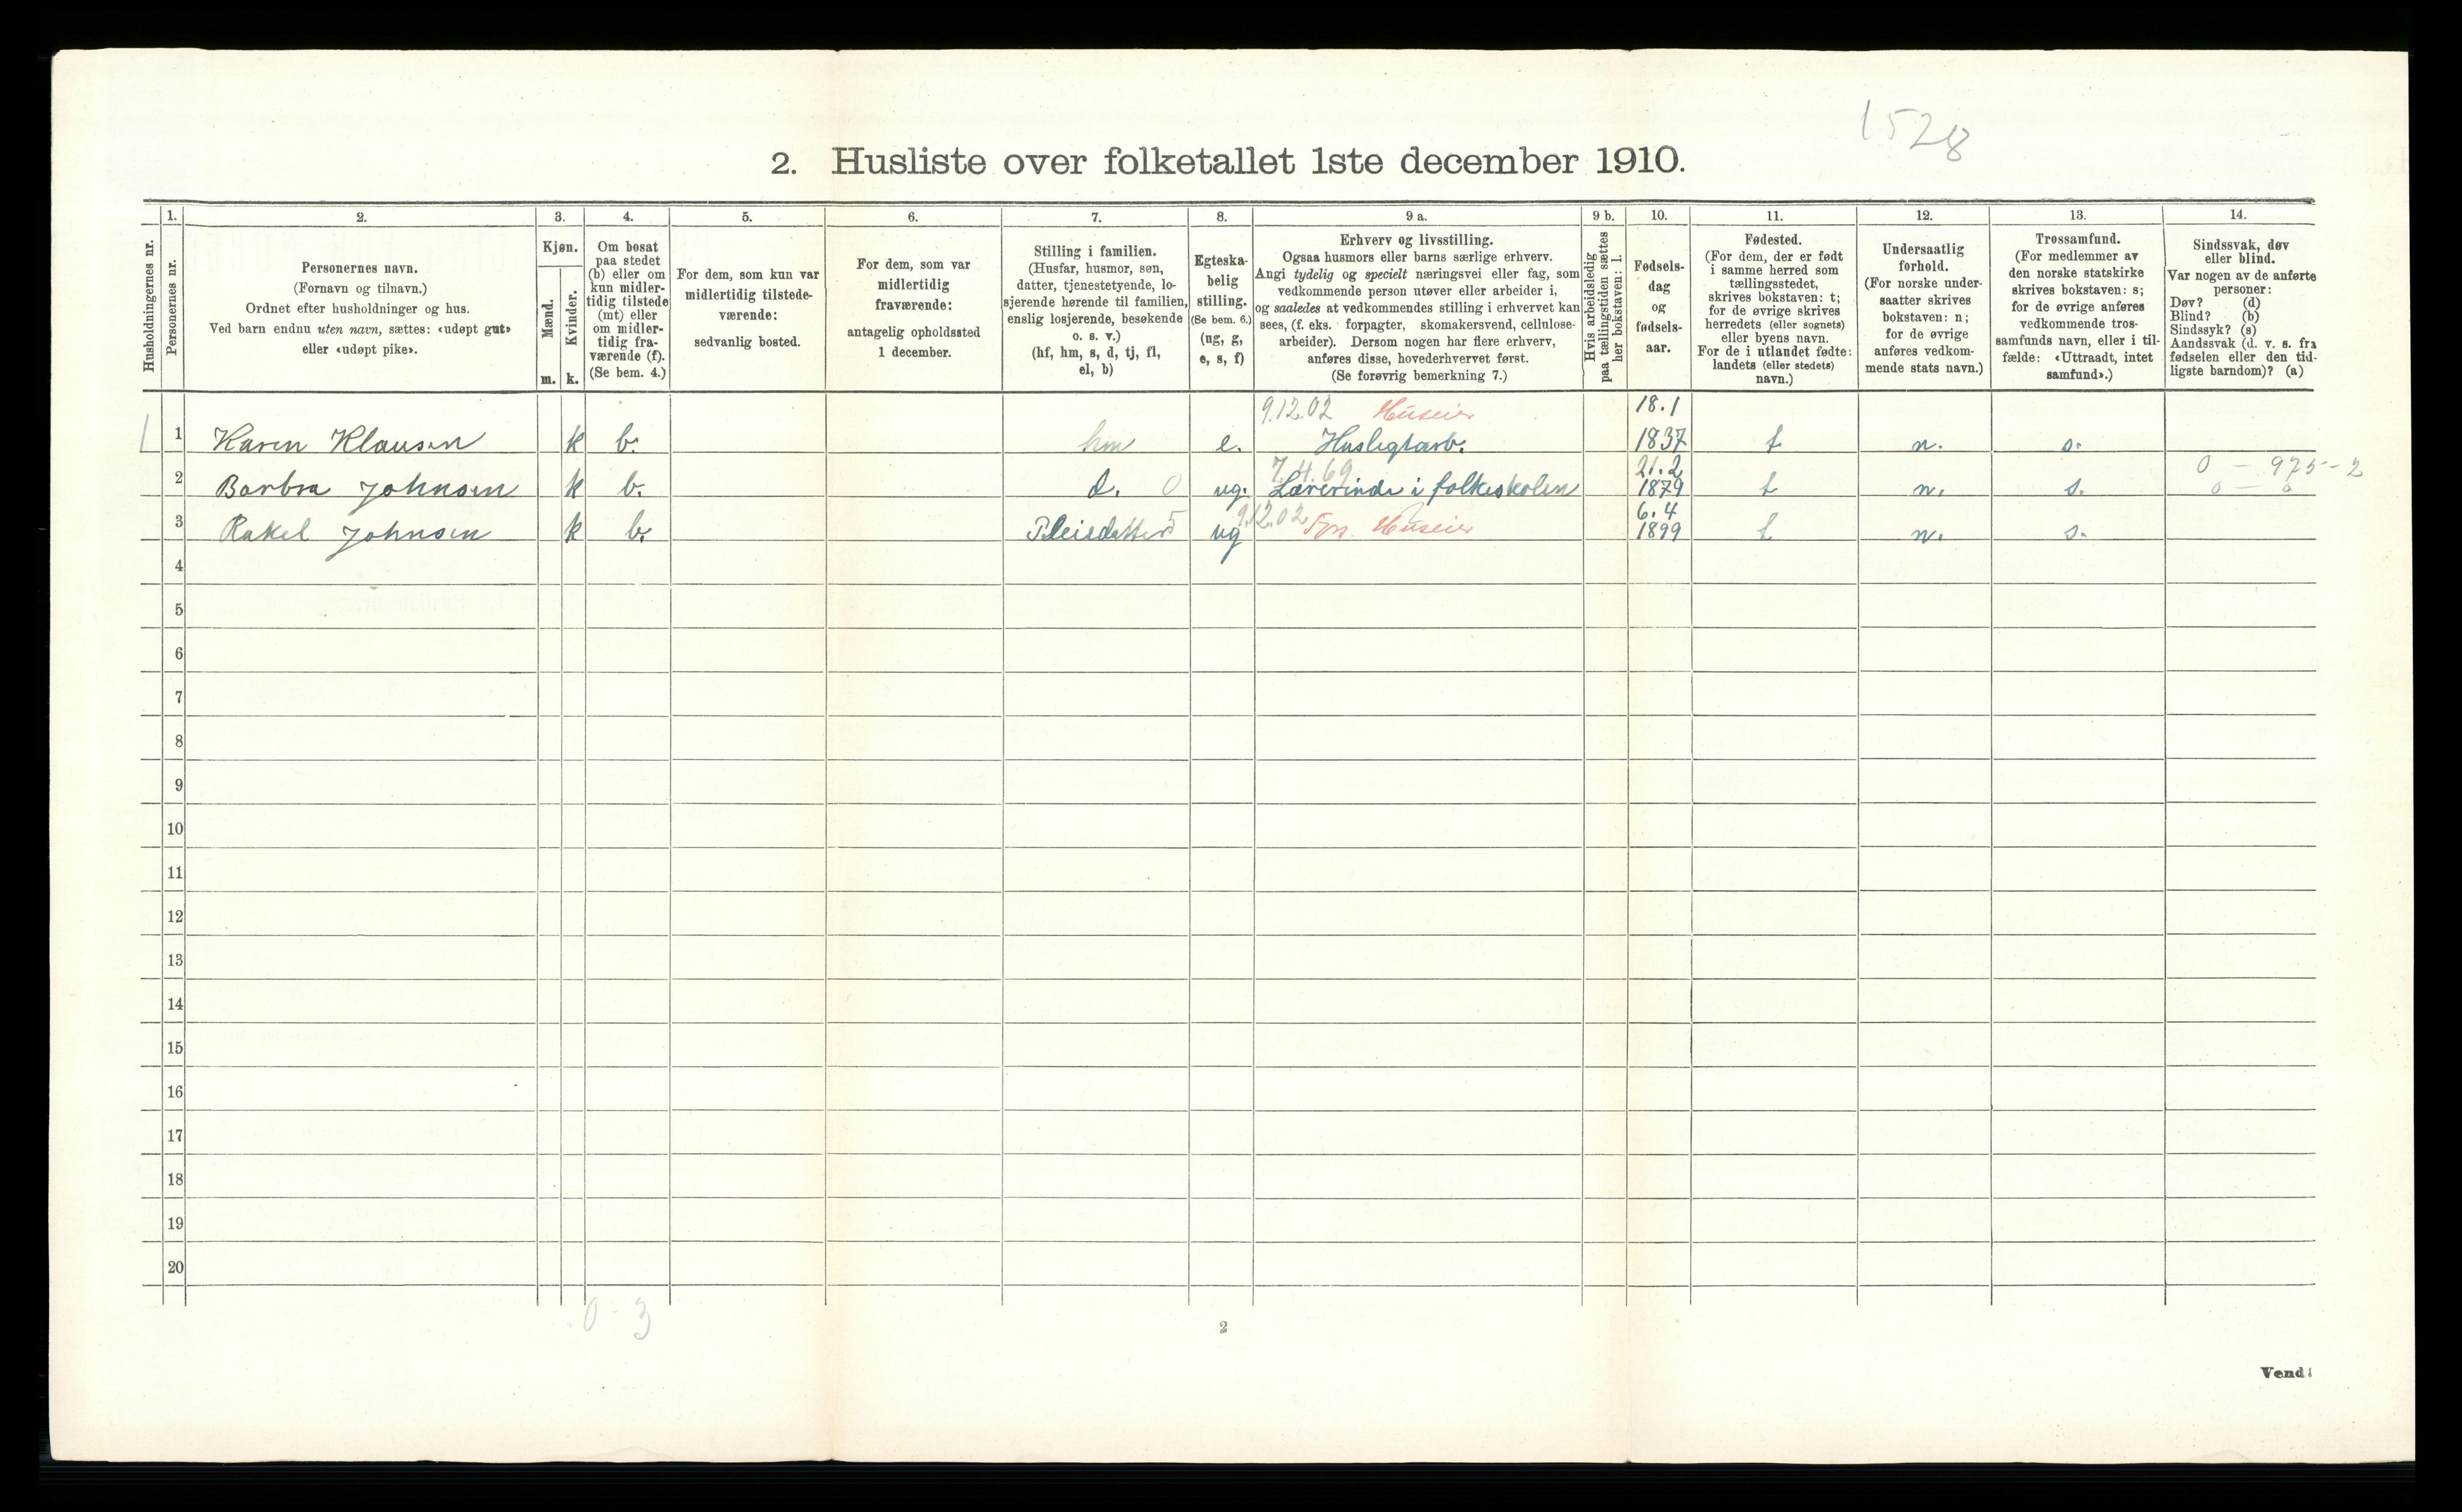 1528
2. Husliste over folketallet 1ste december 1910.
Husholdningernes nr.
1. Personernes nr.
2. Personernes navn.
(Fornavn og tilnavn.)
Ordnet efter husholdninger og hus.
Ved barn endnu uten navn, sættes: «udøpt gut»
eller «udøpt pike».
3. Kjøn.
Mænd. m.
Kvinder. k.
4. Om bosat
paa stedet
(b) eller om
kun midler-
tidig tilstede
(mt) eller
om midler-
tidig fra-
værende (f).
(Se bem. 4.)
5. For dem, som kun var
midlertidig tilstede-
værende:
sedvanlig bosted.
6. For dem, som var
midlertidig
fraværende:
antagelig opholdssted
1 december.
7. Stilling i familien.
(Husfar, husmor, søn,
datter, tjenestetyende, lo-
sjerende hørende til familien,
enslig losjerende, besøkende
o. s. v.)
(hf, hm, s, d, tj, fl,
el, b)
8. Egteska-
belig
stilling.
(Se bem. 6.)
(ug, g,
e, s, f)
9 a. Erhverv og livsstilling.
Ogsaa husmors eller barns særlige erhverv.
Angi tydelig og specielt næringsvei eller fag, som
vedkommende person utøver eller arbeider i,
og saaledes at vedkommendes stilling i erhvervet kan
sees, (f. eks. forpagter, skomakersvend, cellulose-
arbeider). Dersom nogen har flere erhverv,
anføres disse, hovederhvervet først.
(Se forøvrig bemerkning 7.)
9 b. Hvis arbeidsledig
paa tællingstiden sættes
her bokstaven: l.
10. Fødsels-
dag
og
fødsels-
aar.
11. Fødested.
(For dem, der er født
i samme herred som
tællingsstedet,
skrives bokstaven: t;
for de øvrige skrives
herredets (eller sognets)
eller byens navn.
For de i utlandet fødte:
landets (eller stedets)
navn.)
12. Undersaatlig
forhold.
(For norske under-
saatter skrives
bokstaven: n;
for de øvrige
anføres vedkom-
mende stats navn.)
13. Trossamfund.
(For medlemmer av
den norske statskirke
skrives bokstaven: s;
for de øvrige anføres
vedkommende tros-
samfunds navn, eller i til-
fælde: «Uttraadt, intet
samfund».)
14. Sindssvak, døv
eller blind.
Var nogen av de anførte
personer:
Døv? (d)
Blind? (b)
Sindssyk? (s)
Aandssvak (d. v. s. fra
fødselen eller den tid-
ligste barndom)? (a)
9.12.02 Huseier 18.1
1 Karen Klausen k b. hm e. Husligtarb. 1837 t n. s.
7.4.69 21.2 0 - 975-2
2 Barbra Johnsen k b. d. 0 ug. Lærerinde i folkeskolen 1879 t n. s. 0 - 0
9.12.02 6.4
3 Rakel Johnsen k b. Pleiedatter 5 ug Fors. Huseier 1899 t n. s.
4
5
6
7
8
9
10
11
12
13
14
15
16
17
18
19
20
0 - 3
2
Vend!